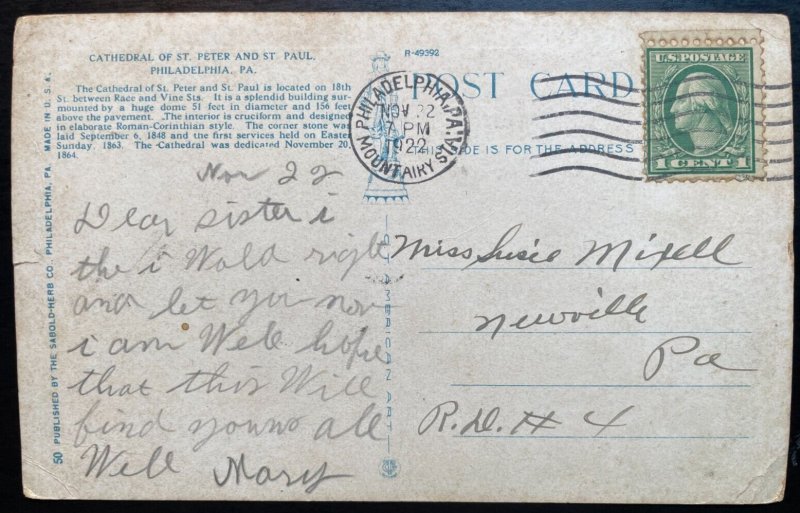 CATHEDRAL OF ST. PETER AND ST PAUL,
PHILADELPHIA, PA.
The Cathedral of St. Peter and St. Paul is located on 18th
St. between Race and Vine Sts. It is a splendid building sur-
mounted by a huge dome 51 feet in diameter and 156 feet
above the pavement. The interior is cruciform and designed
in elaborate Roman-Corinthian style. The corner stone was
laid September 6, 1848 and the first services held on Easter
Sunday, 1863. The Cathedral was dedicated November 20,
1864.
R-49392
POST CARD
THIS SIDE IS FOR THE ADDRESS
PHILADELPHIA, PA.
NOV 22
PM
1922
MOUNT AIRY STA.
U.S. POSTAGE
1 CENT 1
Nov 22
Dear sister i
the i Wold right
and let you now
i am Well hope
that this Will
find youns all
Well Mary
Miss Susie Mixell
Newville
Pa
R.D. # 4
50 PUBLISHED BY THE SABOLD-HERB CO. PHILADELPHIA, PA. MADE IN U.S.A.